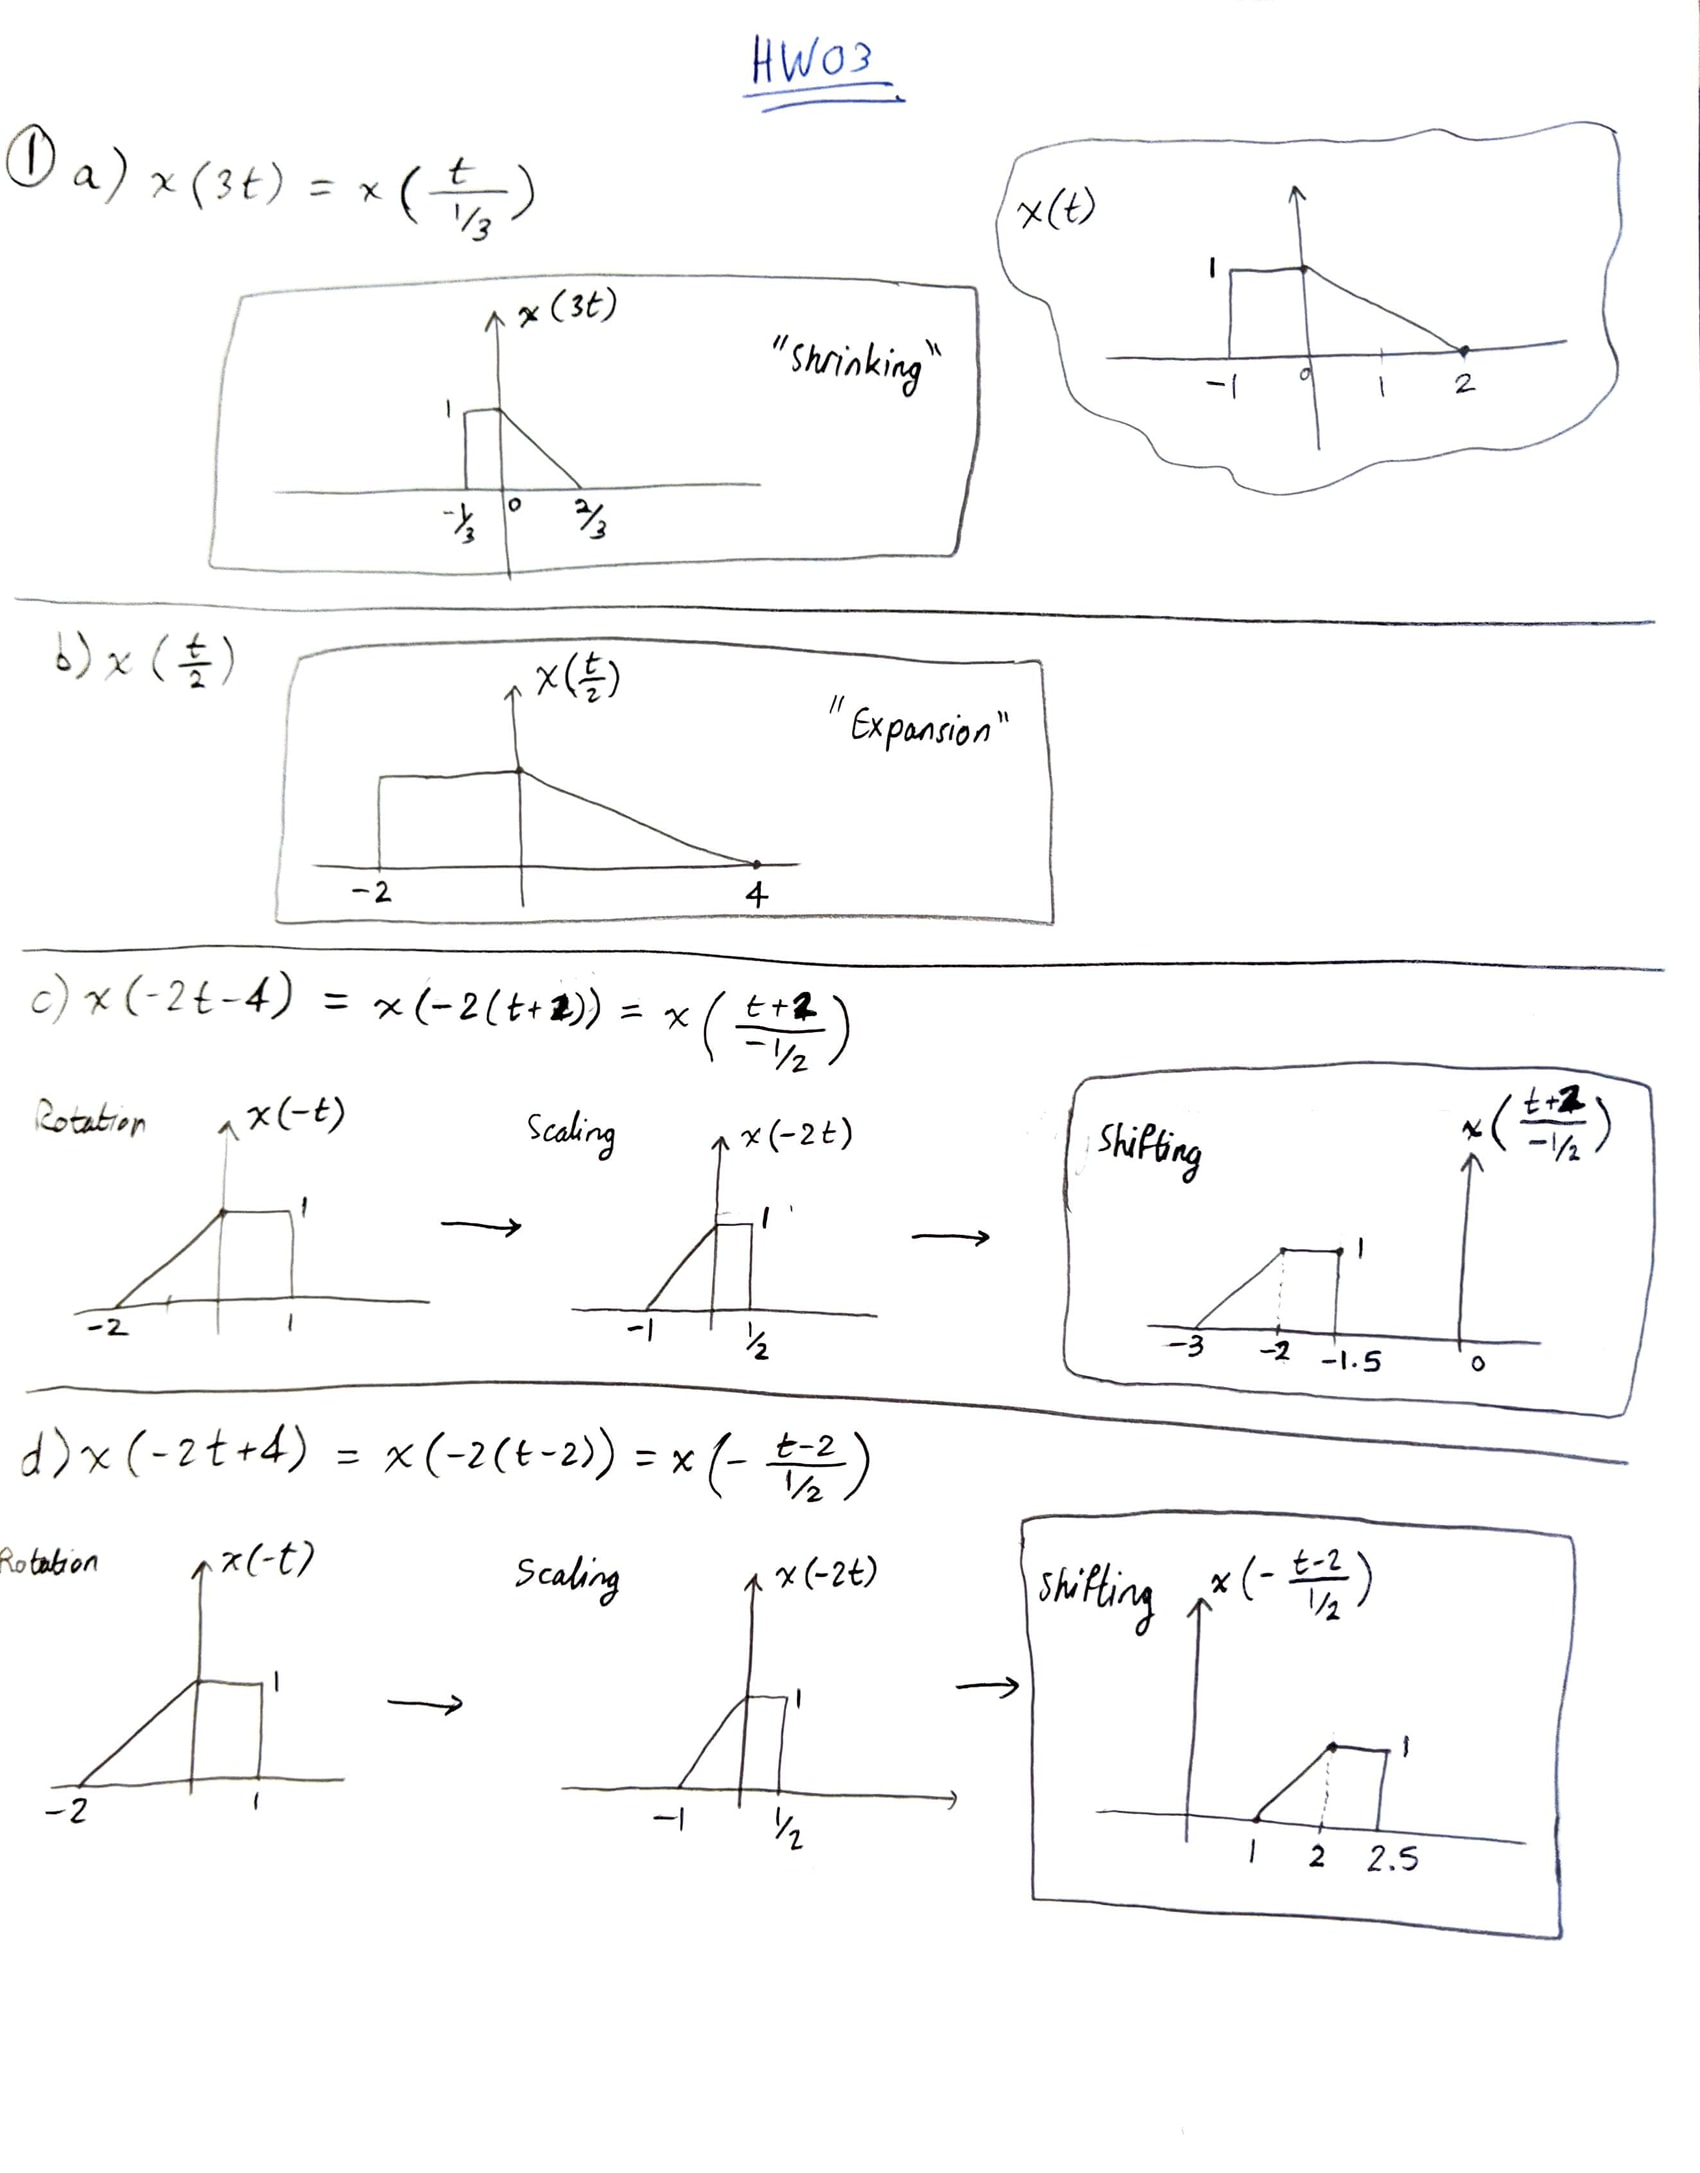 HW03
① a) x(3t) = x(t/(1/3))
x(t)
1
-1 0 1 2
x(3t)
"Shrinking"
1
-1/3 0 2/3
b) x(t/2)
x(t/2)
"Expansion"
-2 4
c) x(-2t-4) = x(-2(t+2)) = x((t+2)/(-1/2))
Rotation x(-t)
1
-2 1
Scaling x(-2t)
1
-1 1/2
Shifting x((t+2)/(-1/2))
1
-3 -2 -1.5 0
d) x(-2t+4) = x(-2(t-2)) = x(- (t-2)/(1/2))
Rotation x(-t)
1
-2 1
Scaling x(-2t)
1
-1 1/2
Shifting x(- (t-2)/(1/2))
1
1 2 2.5